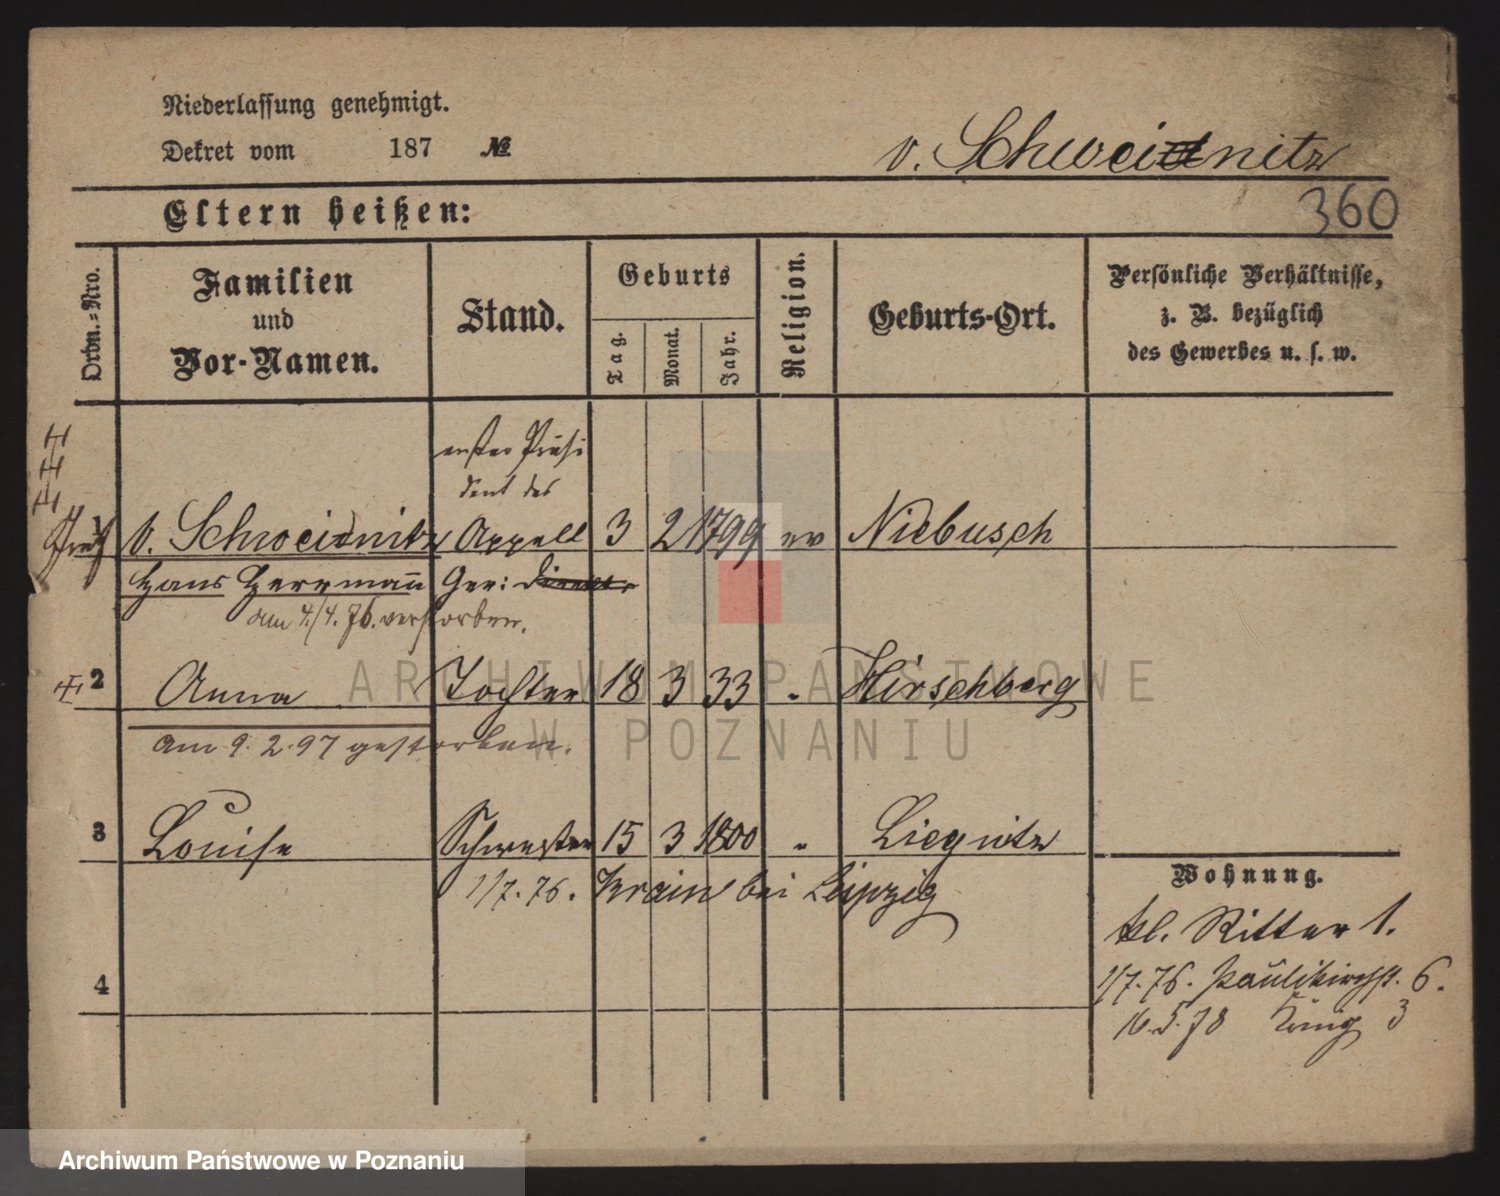 Niederlassung genehmigt.
Dekret vom 187 №
v. Schweidnitz
360
Eltern heißen:
Ordn.-Nro.
Familien
und
Vor-Namen.
Stand.
Geburts
Tag.
Monat.
Jahr.
Religion.
Geburts-Ort.
Persönliche Verhältnisse,
z. B. bezüglich
des Gewerbes u. s. w.
erster Präsi
dent des
1 v. Schweidnitz Appell 3 2 1799 ev Niebusch
Hans Herrmann Ger:
am 4./4. 76. verstorben.
2 Anna Tochter 18 3 33 " Hirschberg
am 9. 2. 97 gestorben.
3 Louise Schwester 15 3 1800 " Liegnitz
1/7. 76. bei Leipzig
4
Wohnung.
kl. Ritter 1.
1/7. 76. Paulikirchst. 6.
16. 5. 78 König 3
ARCHIWUM PAŃSTWOWE
W POZNANIU
Archiwum Państwowe w Poznaniu